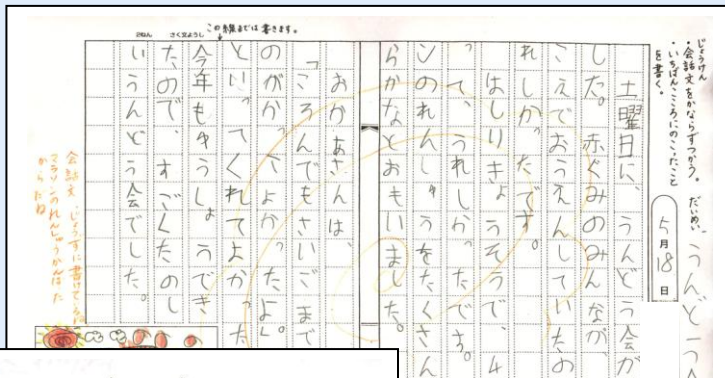 じょうけん
・会話文をかならずつかう。
・いちばんこころにのこったこと
を書く。
だいめい
うんどう
5月18日
土曜日に、うんどう会が
した。赤ぐみのみんなが、
こえでおうえんしていたの
れしかったです。
はしりきょうそうで、4
って、うれしかったです。
ンのれんしゅうをたくさん
らかなとおもいました。
おかあさんは、
「ころんでもさいごまで
のがかっこよかったよ」。
といってくれてよかった
今年もゆうしょうでき
たので、すごくたのし
いうんどう会でした。
この線までは書きます。
2ねん さく文ようし
会話文、じょうずに書けているね
マラソンのれんしゅうがんばった
からだね